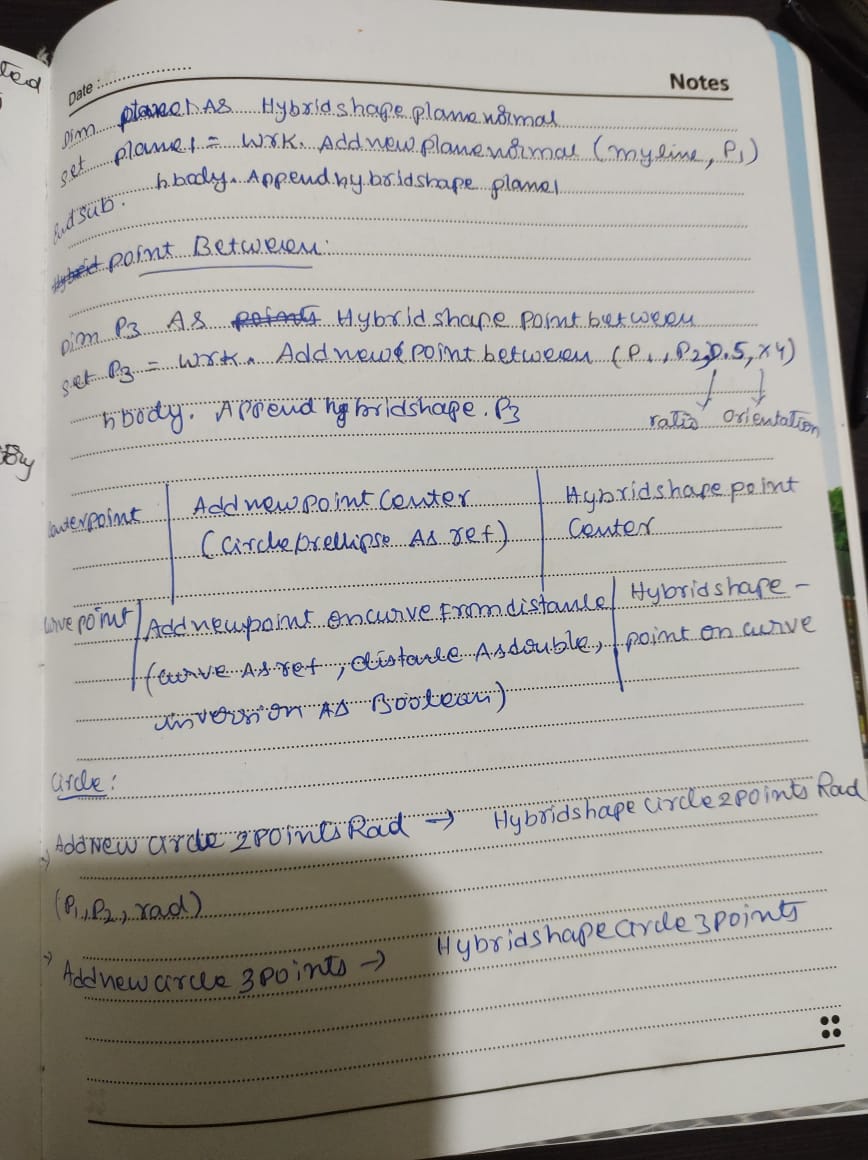 ted
Date :
Notes
Dim plane1 As Hybridshapeplanenormal
set plane1 = wrk. Addnewplanenormal (myline, P1)
hbody. Appendhybridshape plane1
End sub.
Hybrid point Between:
Dim P3 As points Hybridshape Point between
set P3 = wrk. Addnew point between (P1, P2, 0.5, x4)
hbody. Appendhybridshape. P3
ratio orientation
By
centerpoint Addnewpoint Center Hybridshape point
(circle or ellipse As ref) Center
curve point Addnewpoint oncurve Fromdistance Hybridshape -
(curve As ref, distance As double, point on curve
inversion As Boolean)
Circle:
Addnew circle 2pointsRad → Hybridshape circle2points Rad
(P1, P2, rad)
→ Addnewcircle 3points → Hybridshapecircle3points